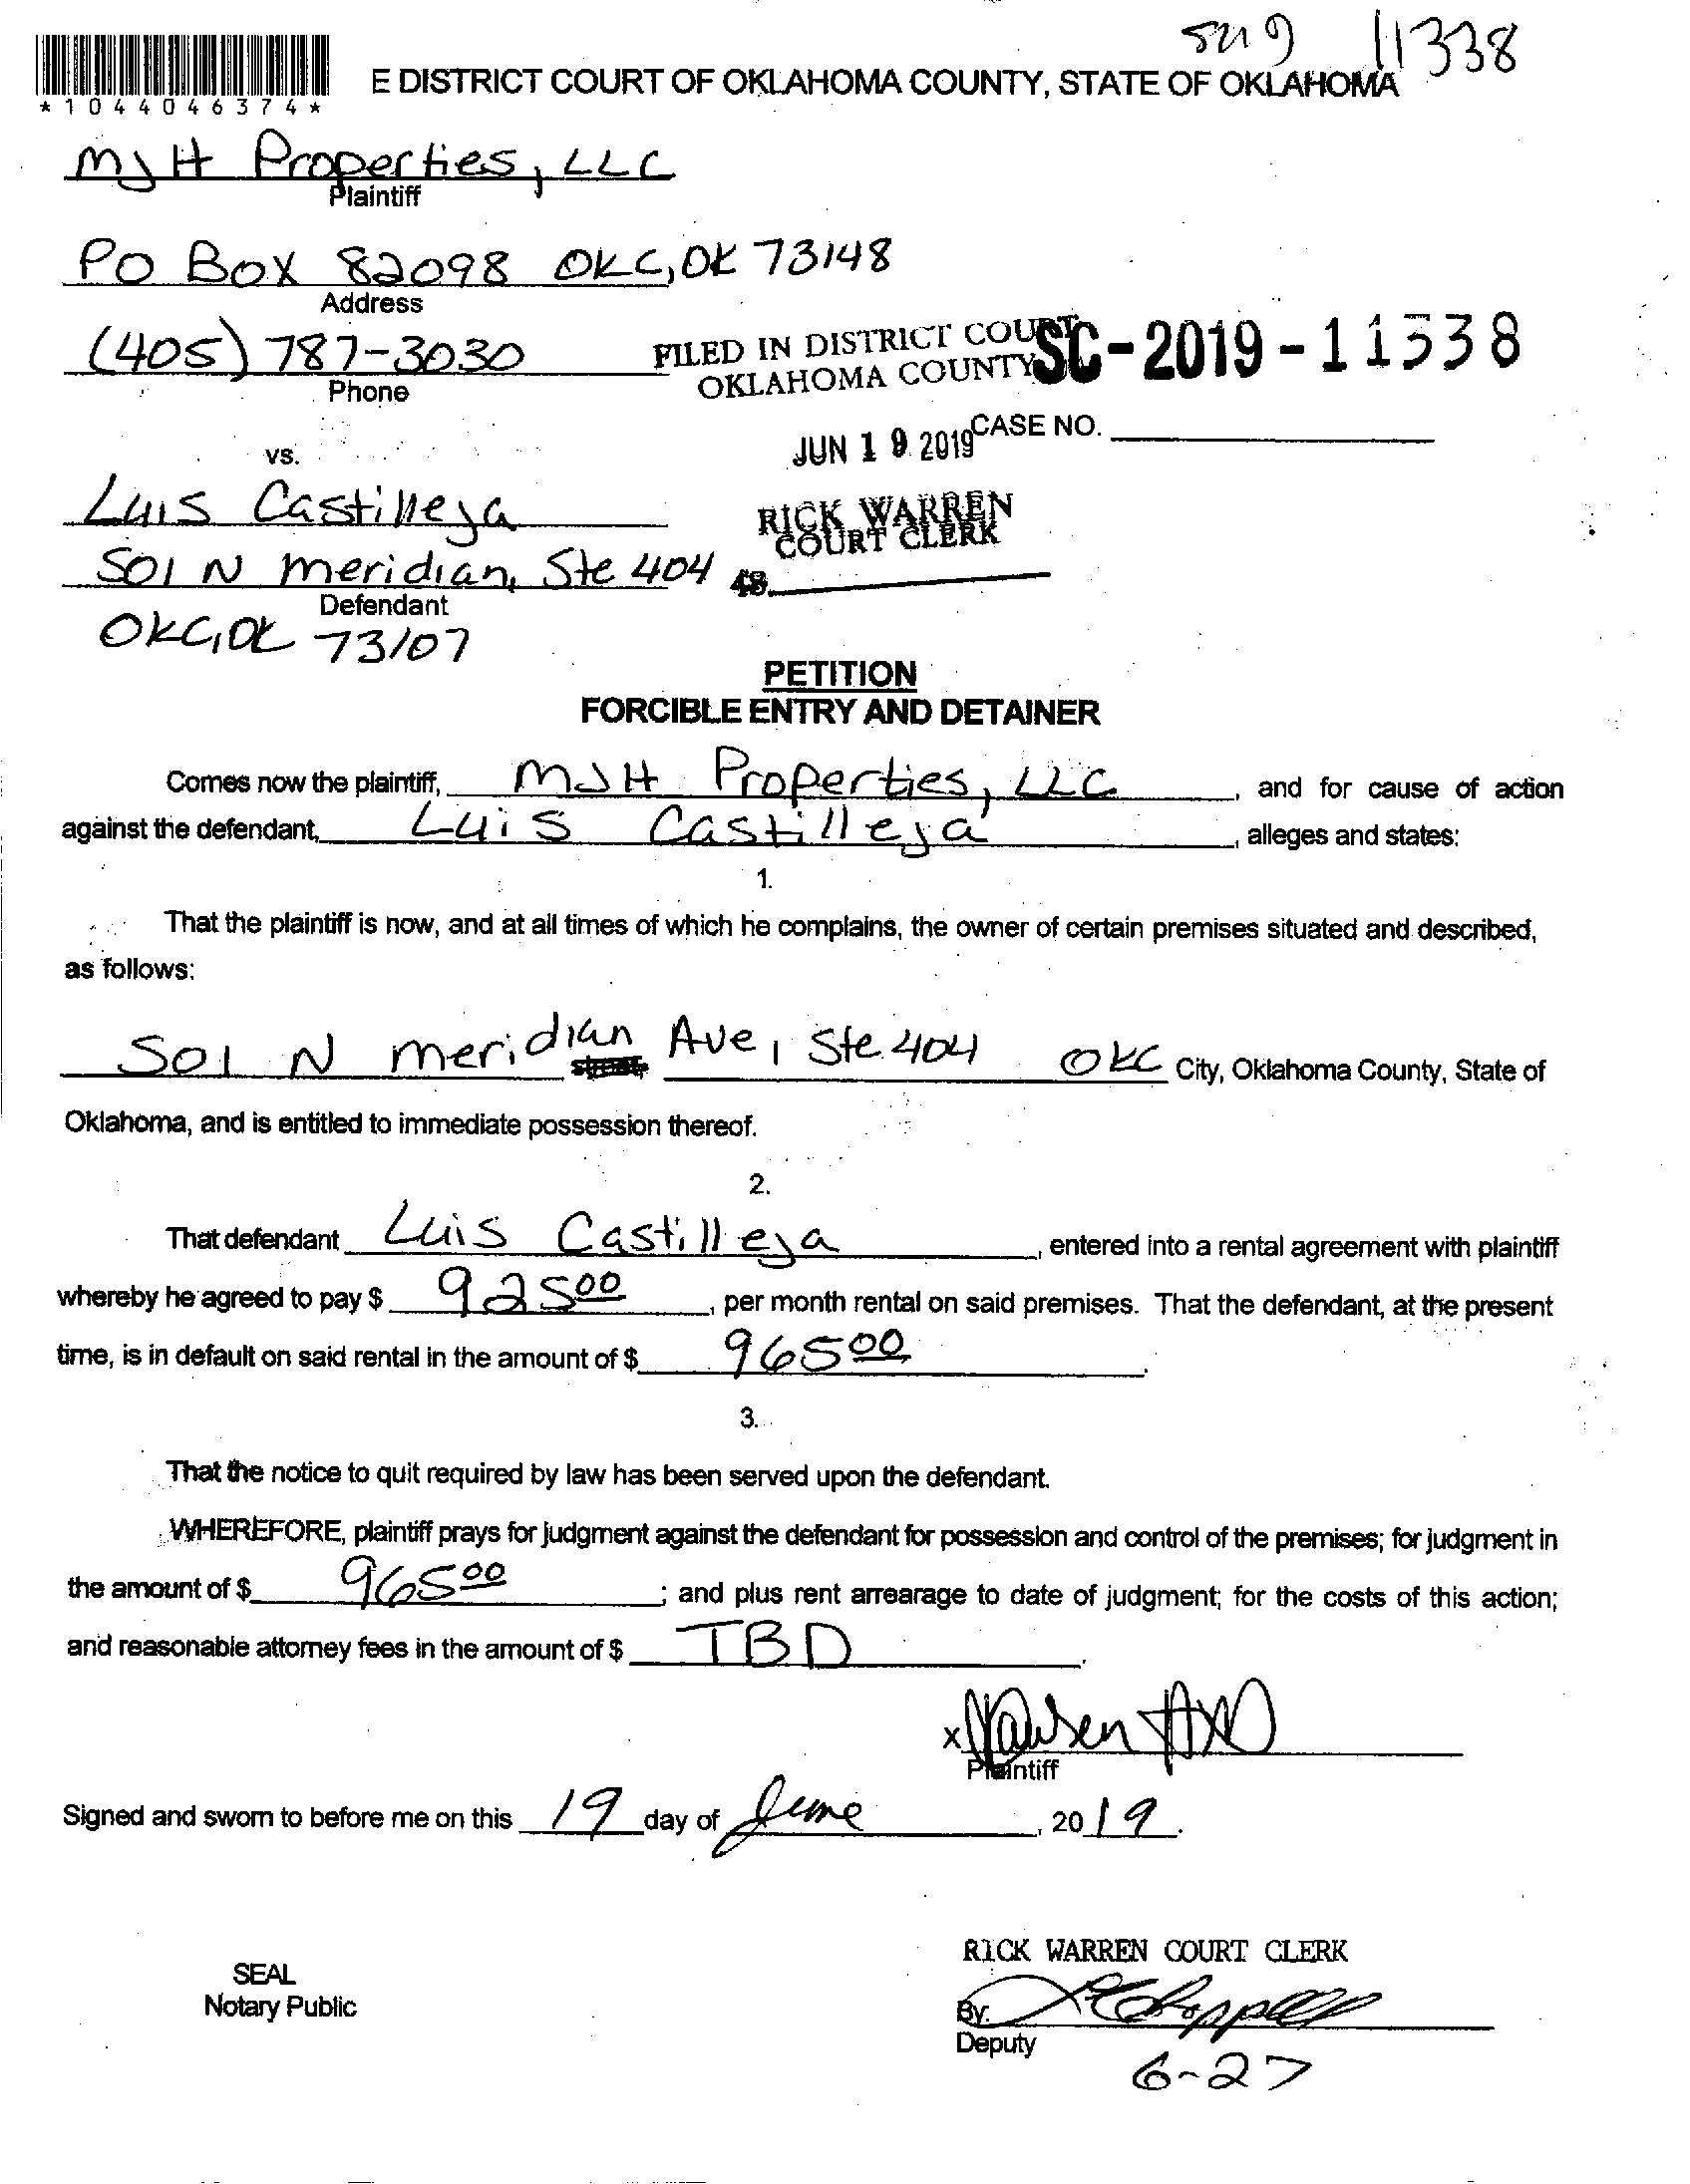 11338
E DISTRICT COURT OF OKLAHOMA COUNTY, STATE OF OKLAHOMA
*1044046374*
MJH Properties, LLC
Plaintiff
PO Box 82098 OKC, OK 73148
Address
(405) 787-3030
Phone
FILED IN DISTRICT COURT
OKLAHOMA COUNTY
SC-2019-11338
JUN 19 2019
CASE NO.
vs.
Luis Castilleja
RICK WARREN
COURT CLERK
501 N Meridian, Ste 404
48
Defendant
OKC, OK 73107
PETITION
FORCIBLE ENTRY AND DETAINER
Comes now the plaintiff, MJH Properties, LLC, and for cause of action
against the defendant, Luis Castilleja, alleges and states:
1.
That the plaintiff is now, and at all times of which he complains, the owner of certain premises situated and described,
as follows:
501 N Meridian Ave, Ste 404 OKC City, Oklahoma County, State of
Oklahoma, and is entitled to immediate possession thereof.
2.
That defendant Luis Castilleja, entered into a rental agreement with plaintiff
whereby he agreed to pay $ 925 00, per month rental on said premises. That the defendant, at the present
time, is in default on said rental in the amount of $ 965 00.
3.
That the notice to quit required by law has been served upon the defendant.
WHEREFORE, plaintiff prays for judgment against the defendant for possession and control of the premises; for judgment in
the amount of $ 965 00; and plus rent arrearage to date of judgment; for the costs of this action;
and reasonable attorney fees in the amount of $ TBD.
x
Plaintiff
Signed and sworn to before me on this 19 day of June, 2019.
RICK WARREN COURT CLERK
SEAL
Notary Public
By:
Deputy
6-27